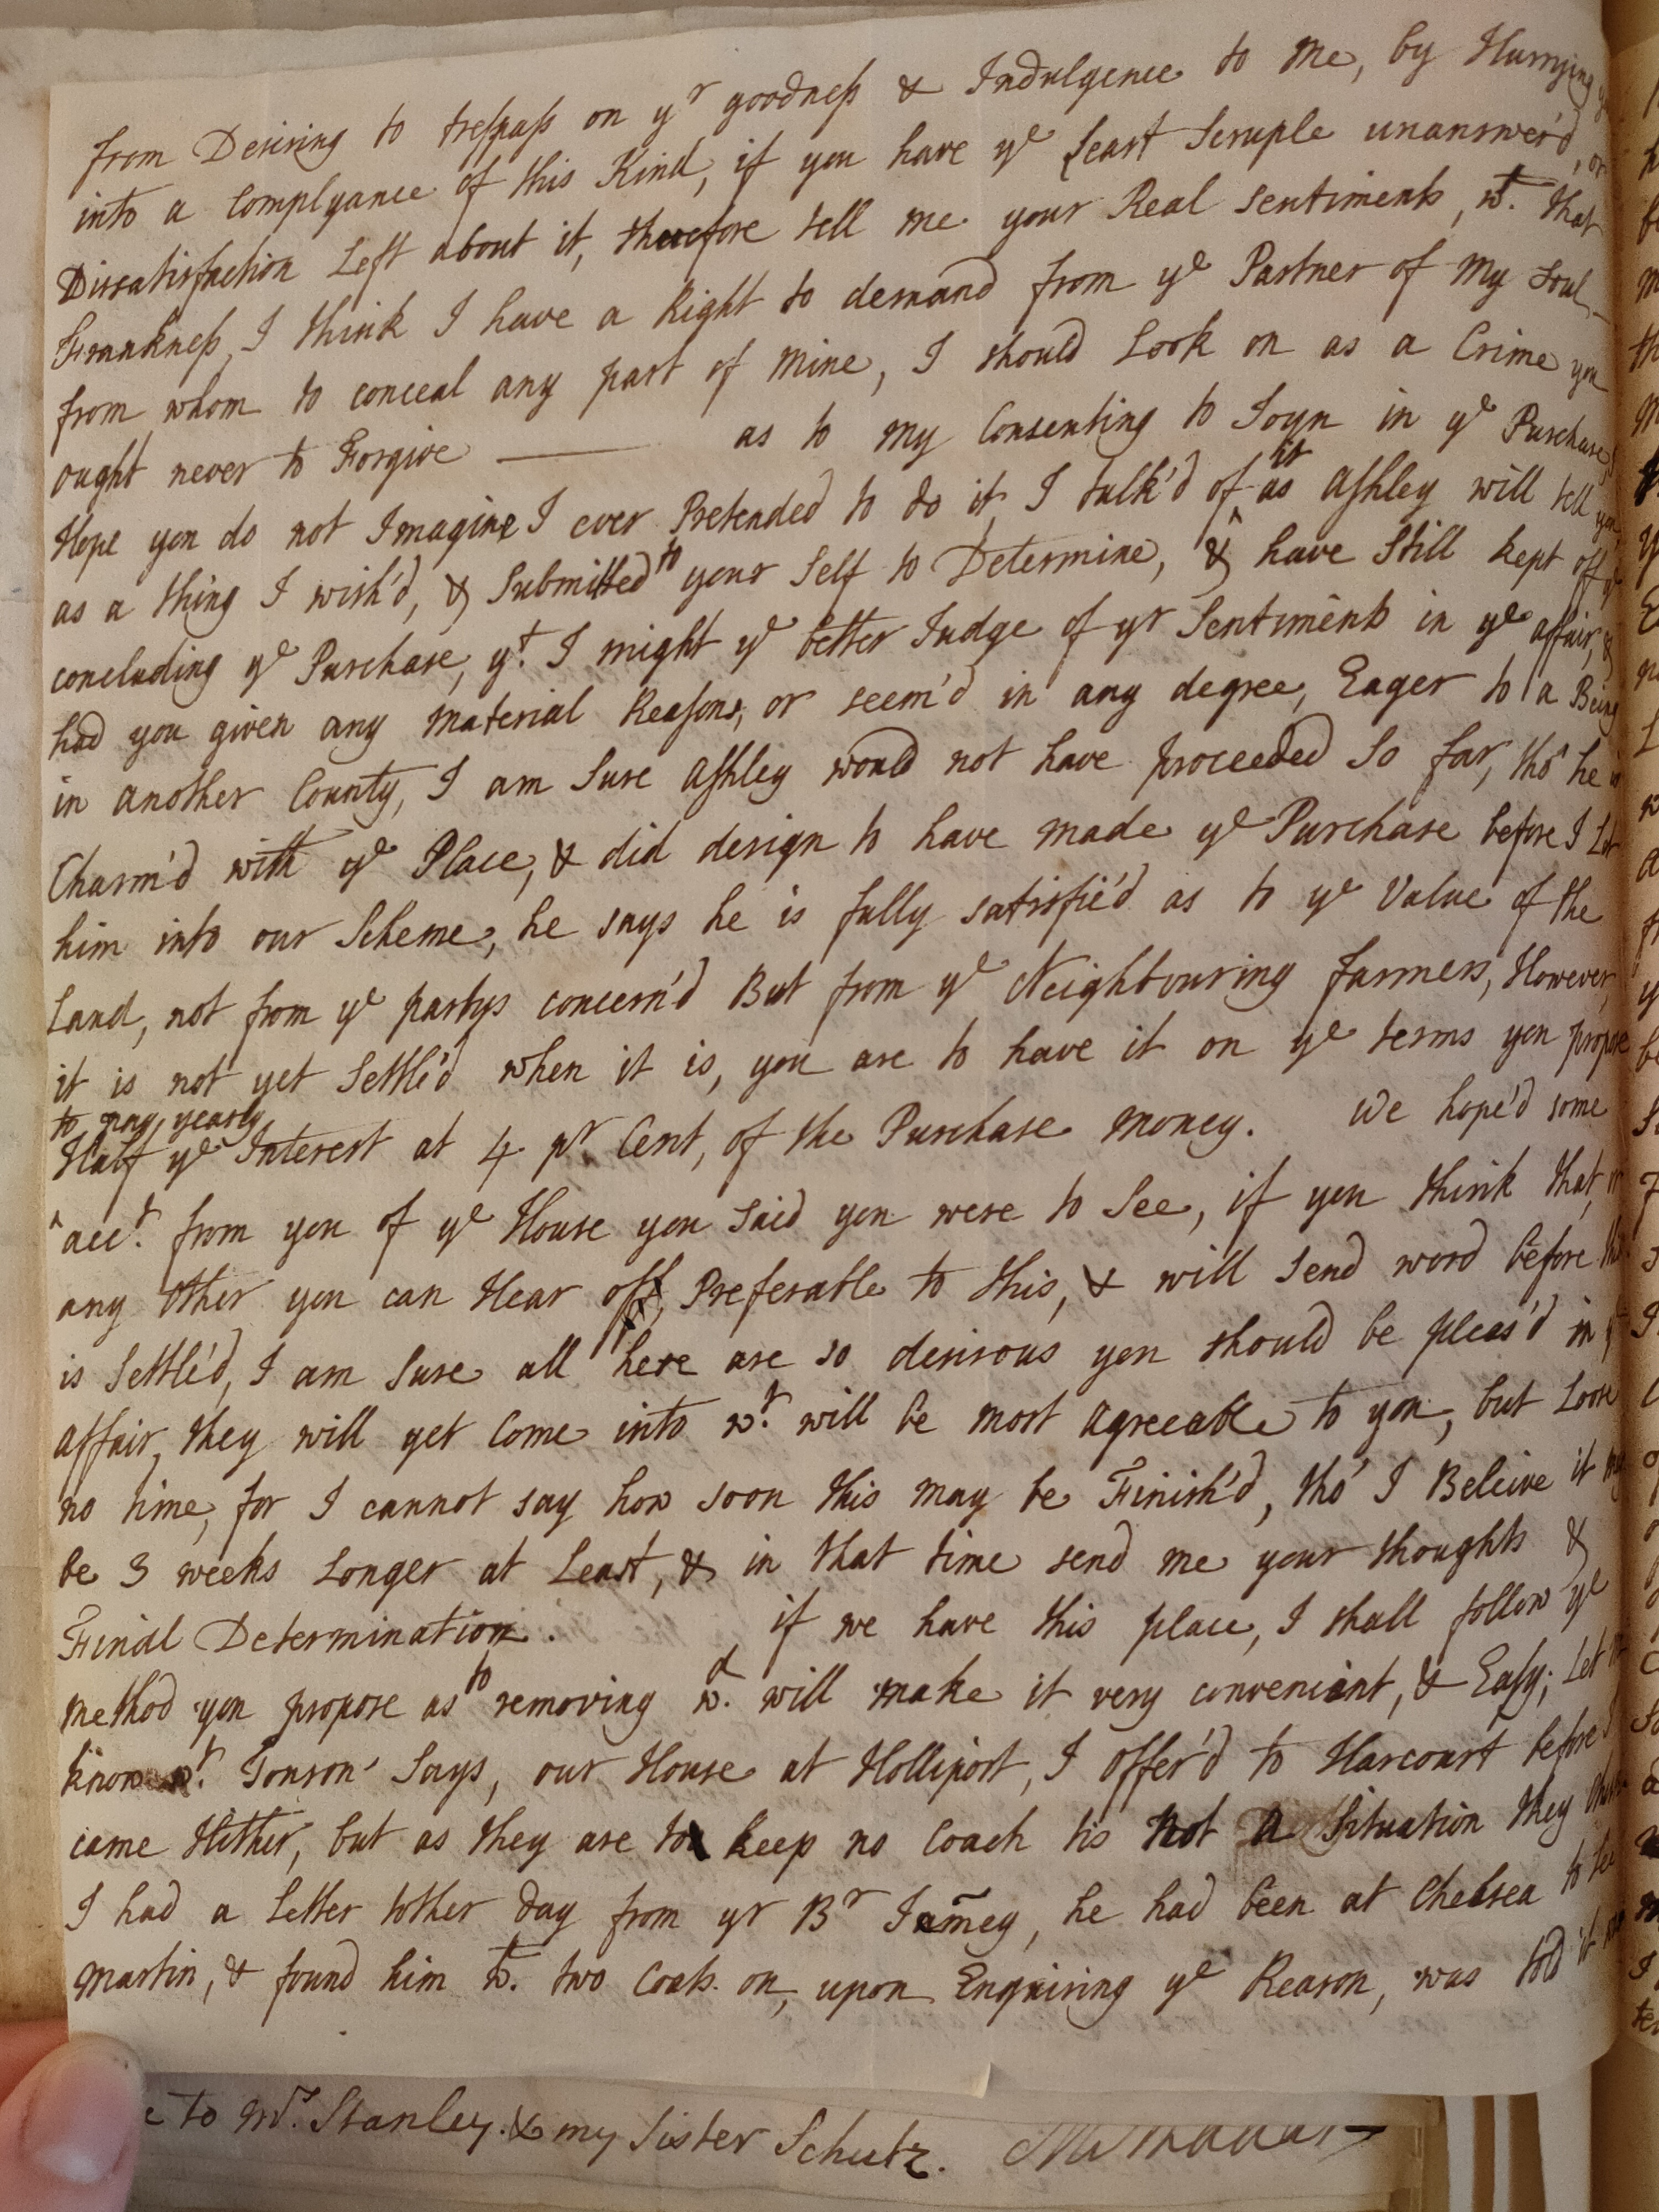 from Desiring to trespass on yr goodness & Indulgence to me, by Hurrying
into a Complyance of this Kind, if you have ye least Scruple unanswer'd, or
Dissatisfaction Left about it, therefore tell me your Real Sentiments, wth. that
Frankness, I think I have a Right to demand from ye Partner of my Soul
from whom to conceal any part of mine, I should Look on as a Crime you
ought never to Forgive —— as to my Consenting to Joyn in ye Purchase
Hope you do not Imagine I ever Pretended to do it, I talk'd of it as Ashley will tell you
as a thing I wish'd, & Submitted to your Self to Determine, & have Still kept off ye
concluding ye Purchase, yt. I might ye better Judge of yr Sentiments in ye affair, &
had you given any material Reasons, or seem'd in any degree, Eager to a Being
in another County, I am Sure Ashley would not have proceeded So far, tho' he
Charm'd with ye Place, & did design to have made ye Purchase before I Let
him into our Scheme, he says he is fully satisfie'd as to ye Value of the
Land, not from ye partys concern'd But from ye Neighbouring farmers, However,
it is not yet Settle'd when it is, you are to have it on ye terms you propose
to pay yearly
Half ye Interest at 4 pr. Cent, of the Purchase money. We hope'd some
acct. from you of ye House you said you were to See, if you think that, or
any other you can Hear off, Preferable to this, & will send word before this
is Settle'd, I am Sure all here are so desirous you should be pleas'd in
affair, they will yet Come into wt. will be most agreeable to you, but Loose
no time, for I cannot say how soon this may be Finish'd, tho' I Beleive it may
be 3 weeks Longer at Least, & in that time send me your thoughts &
Final Determination. if we have this place, I shall follow ye
method you propose as to removing wch. will make it very convenient, & Easy; Let me
know wt. Tonson Says, our House at Holliport, I offer'd to Harcourt before I
came Hither, but as they are to keep no Coach tis not a Situation they
I had a Letter tother day from yr Br Jamey, he had been at Chelsea to see
Martin, & found him wth. two Coats on, upon Enquiring ye Reason, was told it
to Mrs. Stanley. & my Sister Schutz.